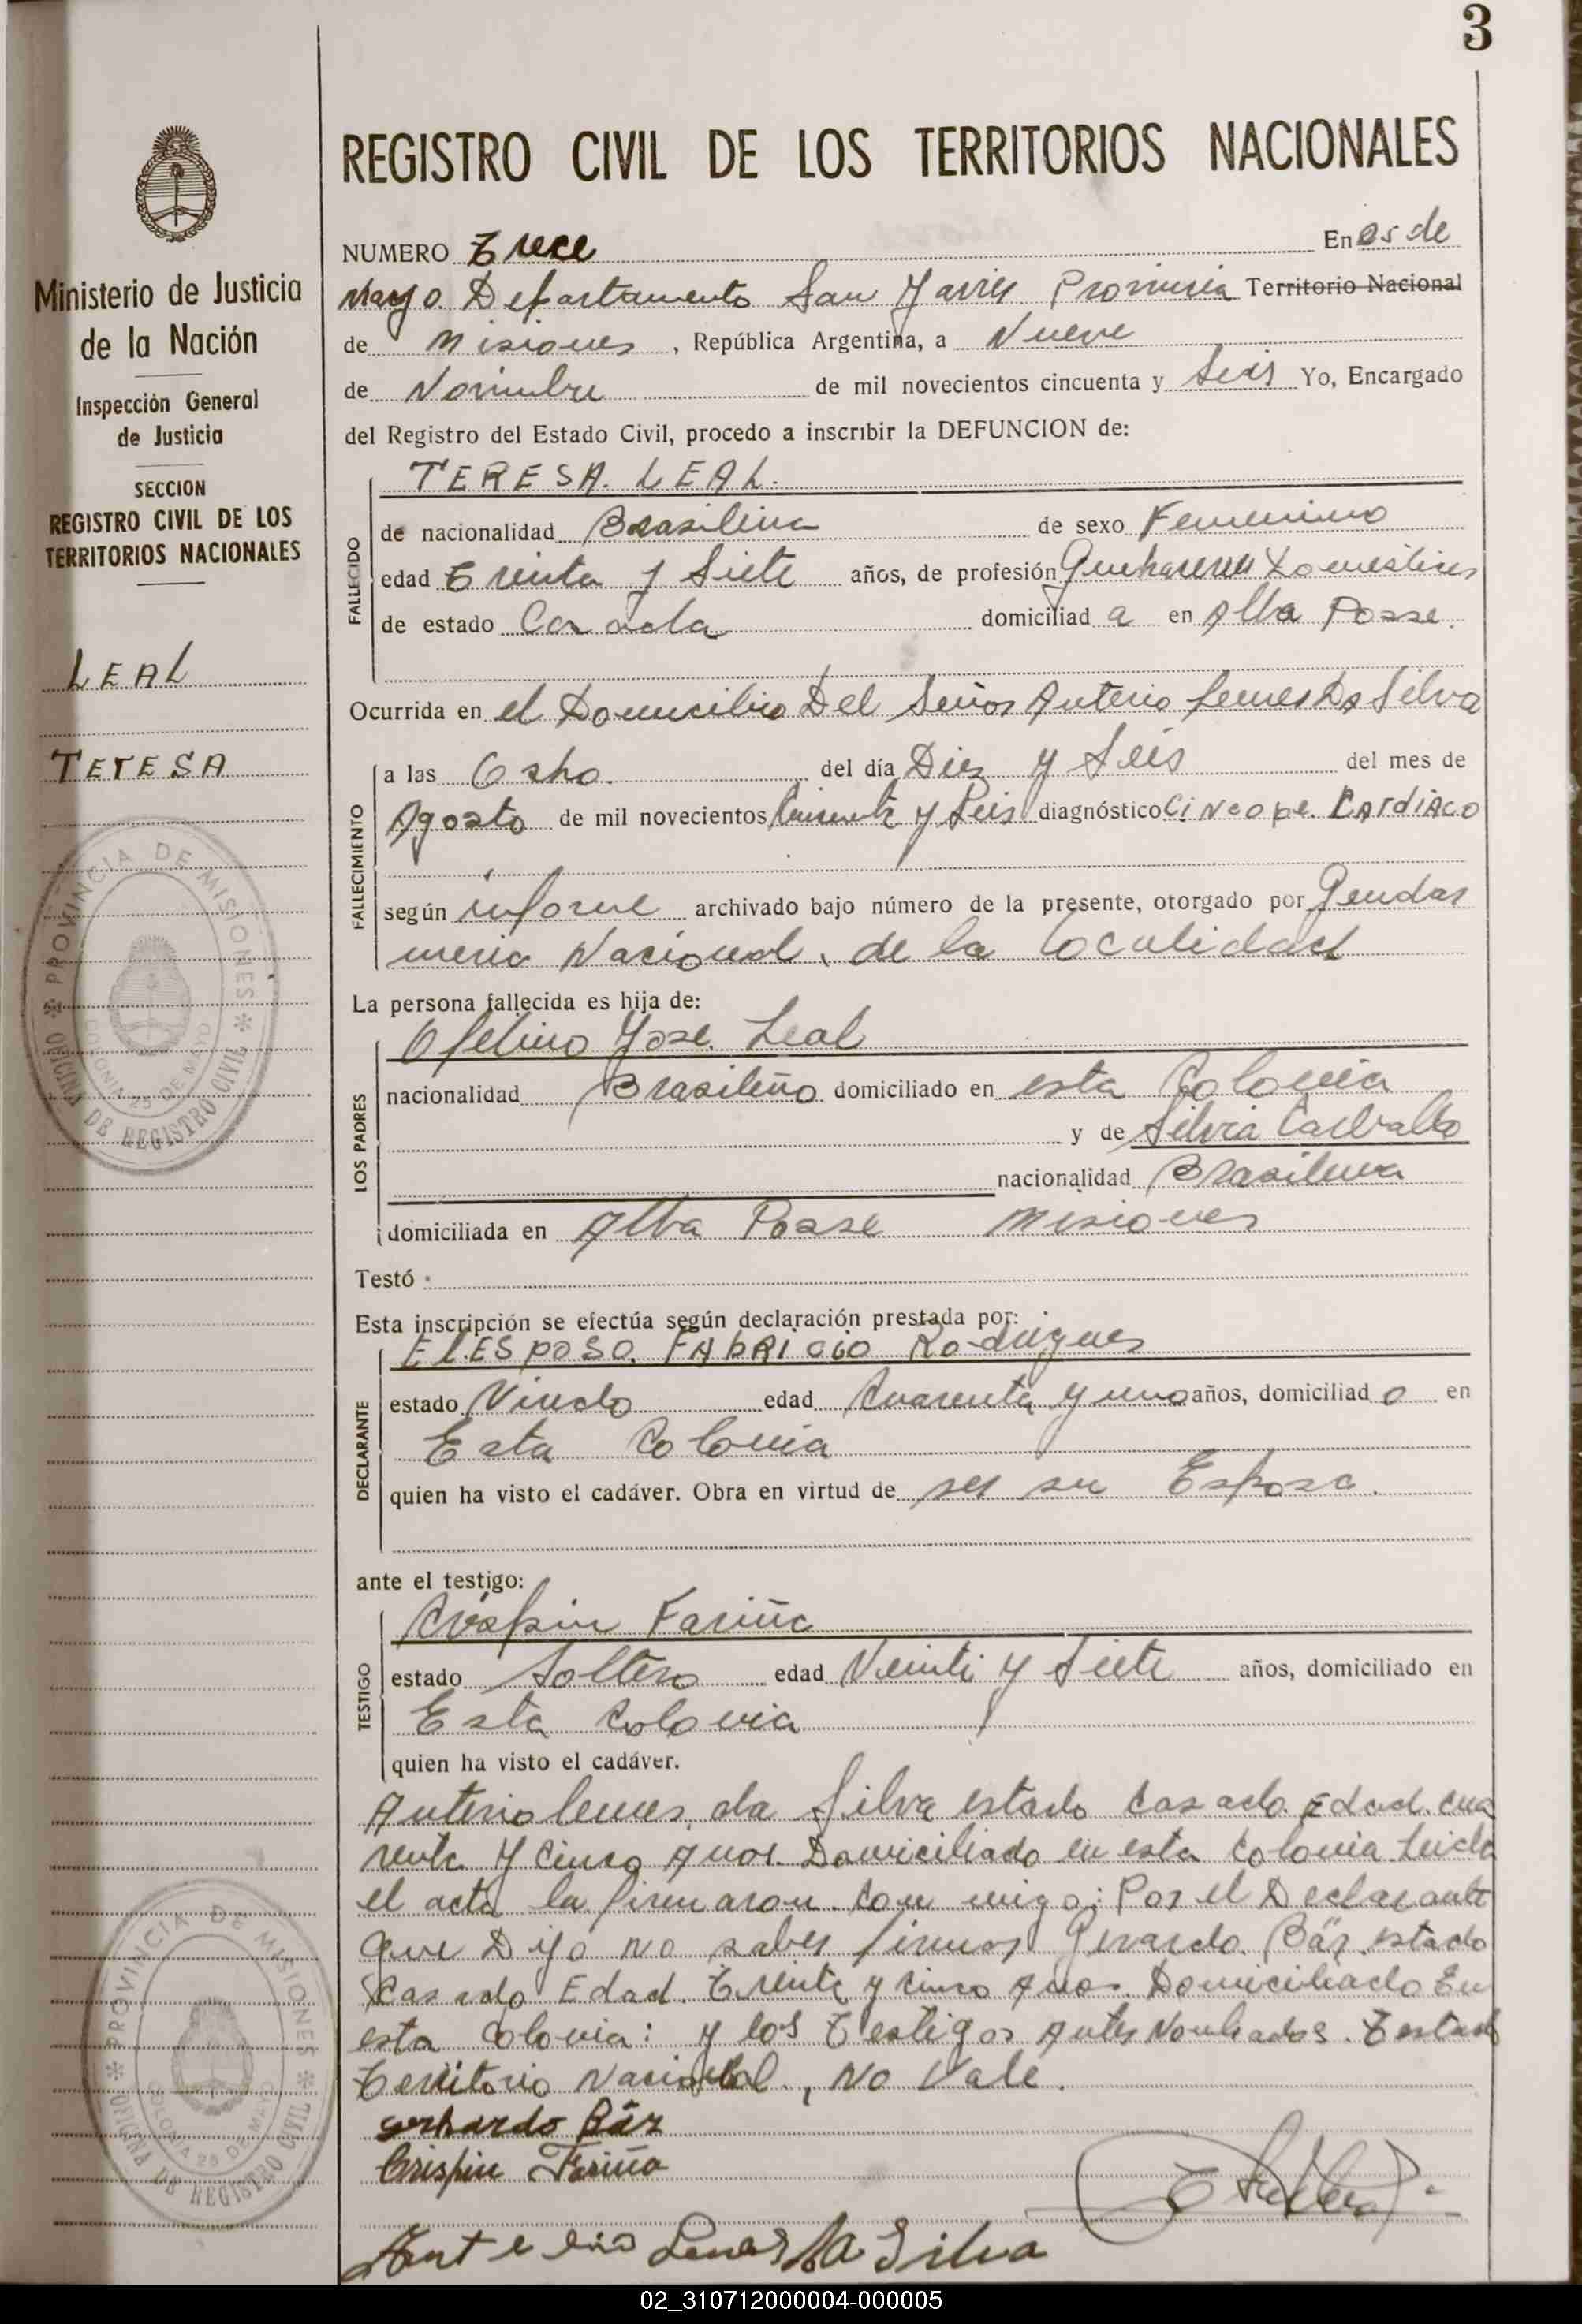 3
REGISTRO CIVIL DE LOS TERRITORIOS NACIONALES
Ministerio de Justicia
de la Nación
Inspección General
de Justicia
SECCION
REGISTRO CIVIL DE LOS
TERRITORIOS NACIONALES
LEAL
TERESA
PROVINCIA DE MISIONES
COLONIA 25 DE MAYO
OFICINA DE REGISTRO CIVIL
NUMERO Trece En 25 de
Mayo. Departamento San Javier Provincia Territorio Nacional
de Misiones, República Argentina, a Nueve
de Noviembre de mil novecientos cincuenta y Seis Yo, Encargado
del Registro del Estado Civil, procedo a inscribir la DEFUNCION de:
TERESA. LEAL.
FALLECIDO
de nacionalidad Brasilina de sexo Femenino
edad Treinta y Siete años, de profesión Quehaceres Domesticos
de estado Casada domiciliad a en Alba Posse.
Ocurrida en el Domicilio Del Señor Anterio Lemes Da Silva
FALLECIMIENTO
a las Ocho. del día Diez y Seis del mes de
Agosto de mil novecientos Cincuenta y Seis diagnóstico Cincope. CArdiAco
según informe archivado bajo número de la presente, otorgado por Gendar
meria Nacional, de la localidad
La persona fallecida es hija de:
LOS PADRES
Ofelino Jose. Leal
nacionalidad Brasileño domiciliado en esta Colonia
y de Silvia Carballo
nacionalidad Brasilena
domiciliada en Alba Posse Misiones
Testó
Esta inscripción se efectúa según declaración prestada por:
DECLARANTE
El ESPOSO. FAbRicio Rodrigues
estado Viudo edad Cuarenta y uno años, domiciliad o en
Esta Colonia
quien ha visto el cadáver. Obra en virtud de ser su Esposa.
ante el testigo:
TESTIGO
Crispin Fariña
estado Soltero edad Veinti y Siete años, domiciliado en
Esta Colonia
quien ha visto el cadáver.
Anterio lemes. da Silva estado Casado. Edad. cua
renta y Cinco Anos. Domiciliado en esta Colonia Leida
el acta la firmaron. Con migo: Por el Declarante
que Dijo no saber firmar Gerardo. Bär. estado
Casado Edad. Treinta y Cinco Anos. Domiciliado En
esta Colonia: y los Testigos Antes Nonbrados. Testado
Territorio Nacional, No Vale.
Gerhardo Bär
Crispin Fariña
Anterio Lemes Da Silva
PROVINCIA DE MISIONES
COLONIA 25 DE MAYO
OFICINA DE REGISTRO CIVIL
02_310712000004-000005